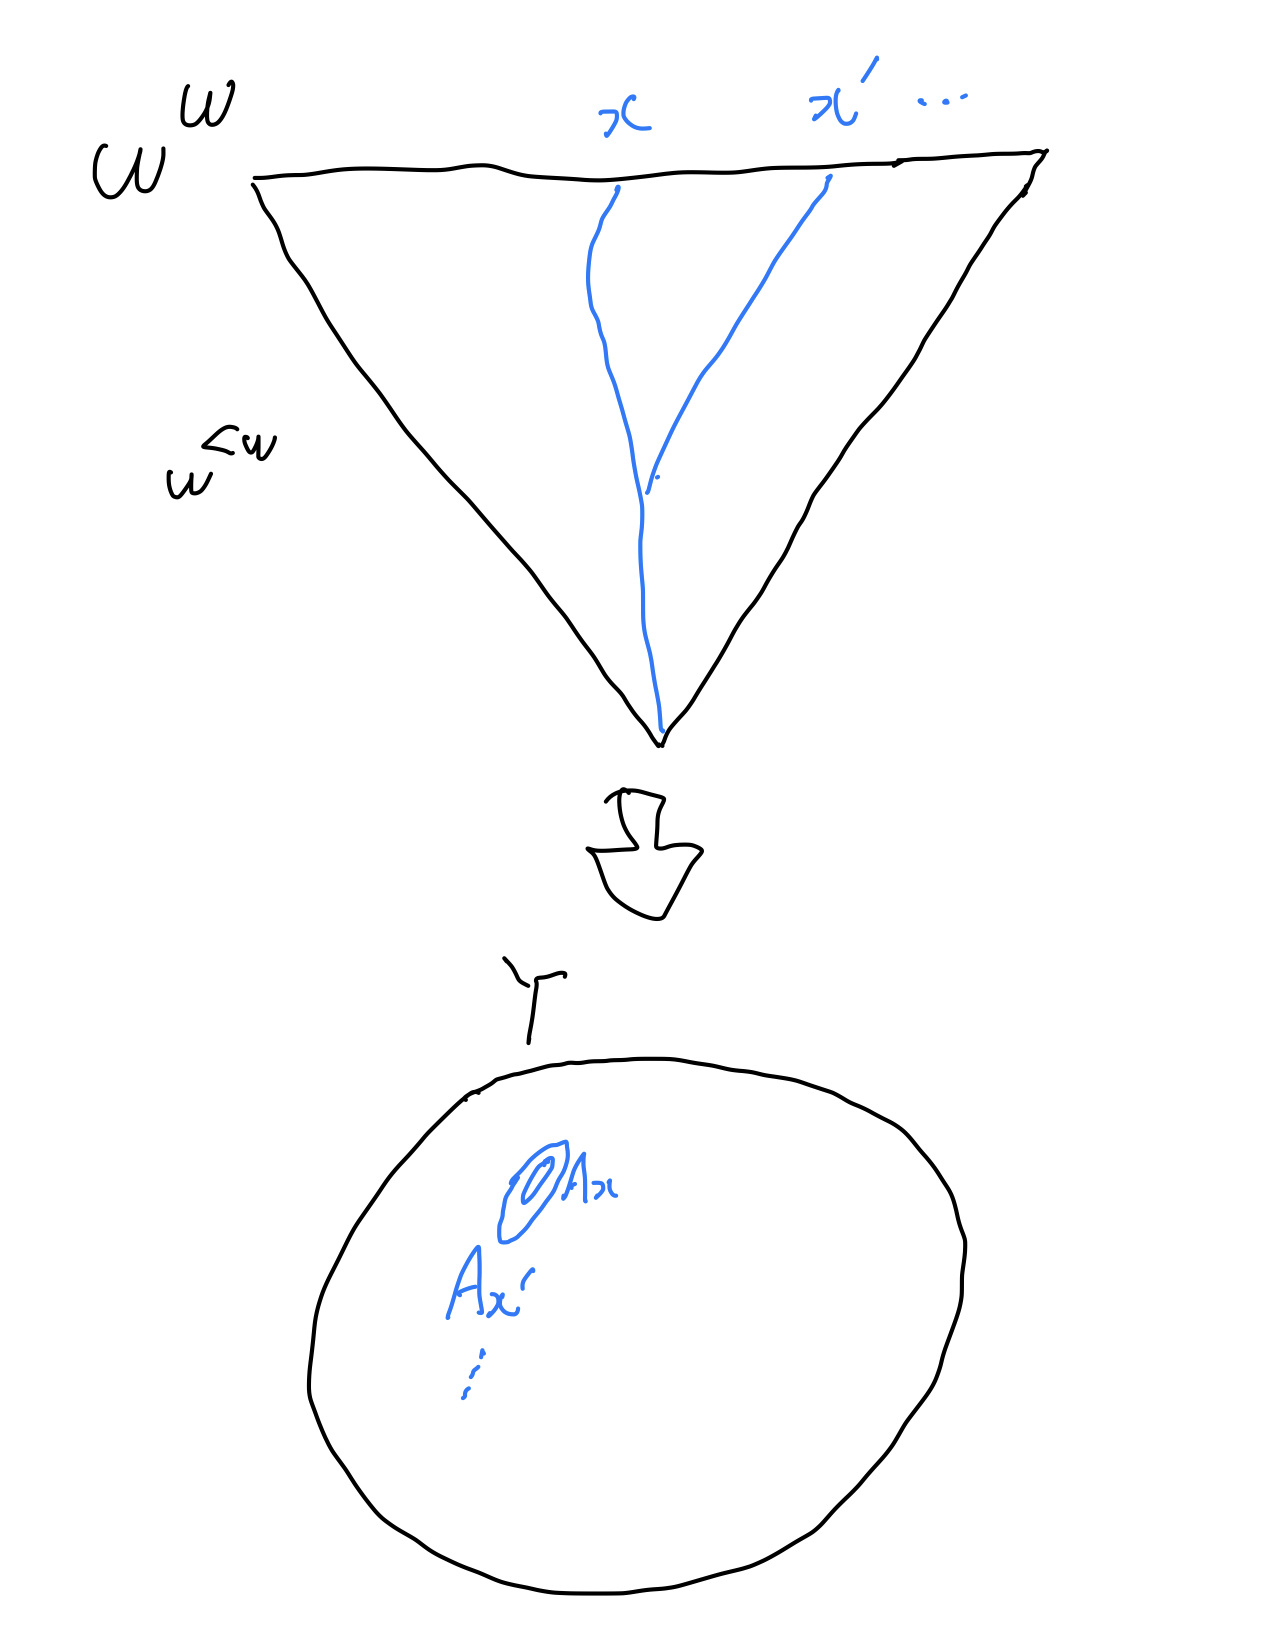 ω^ω x x′ ...
ω^<ω
Y
A_x
A_x′
⋮